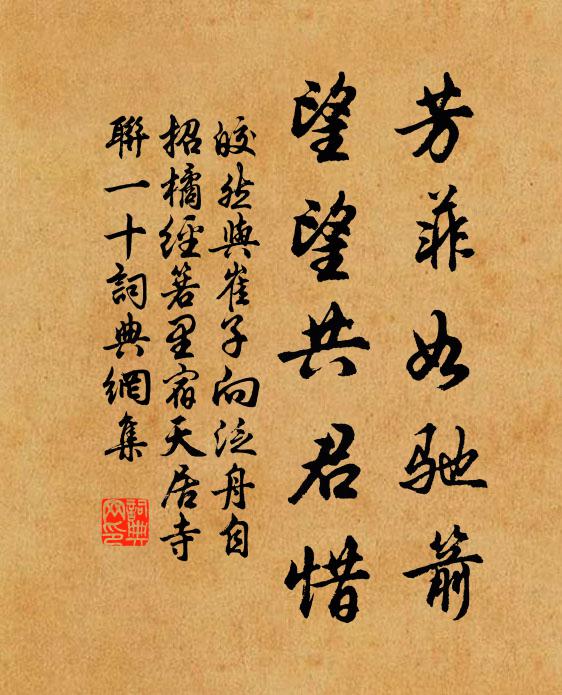 芳菲如馳箭
望望共君惜
皎然與崔子向泛舟自
招橘經箬里宿天居寺
聯一十詞典網集
詞典
网印